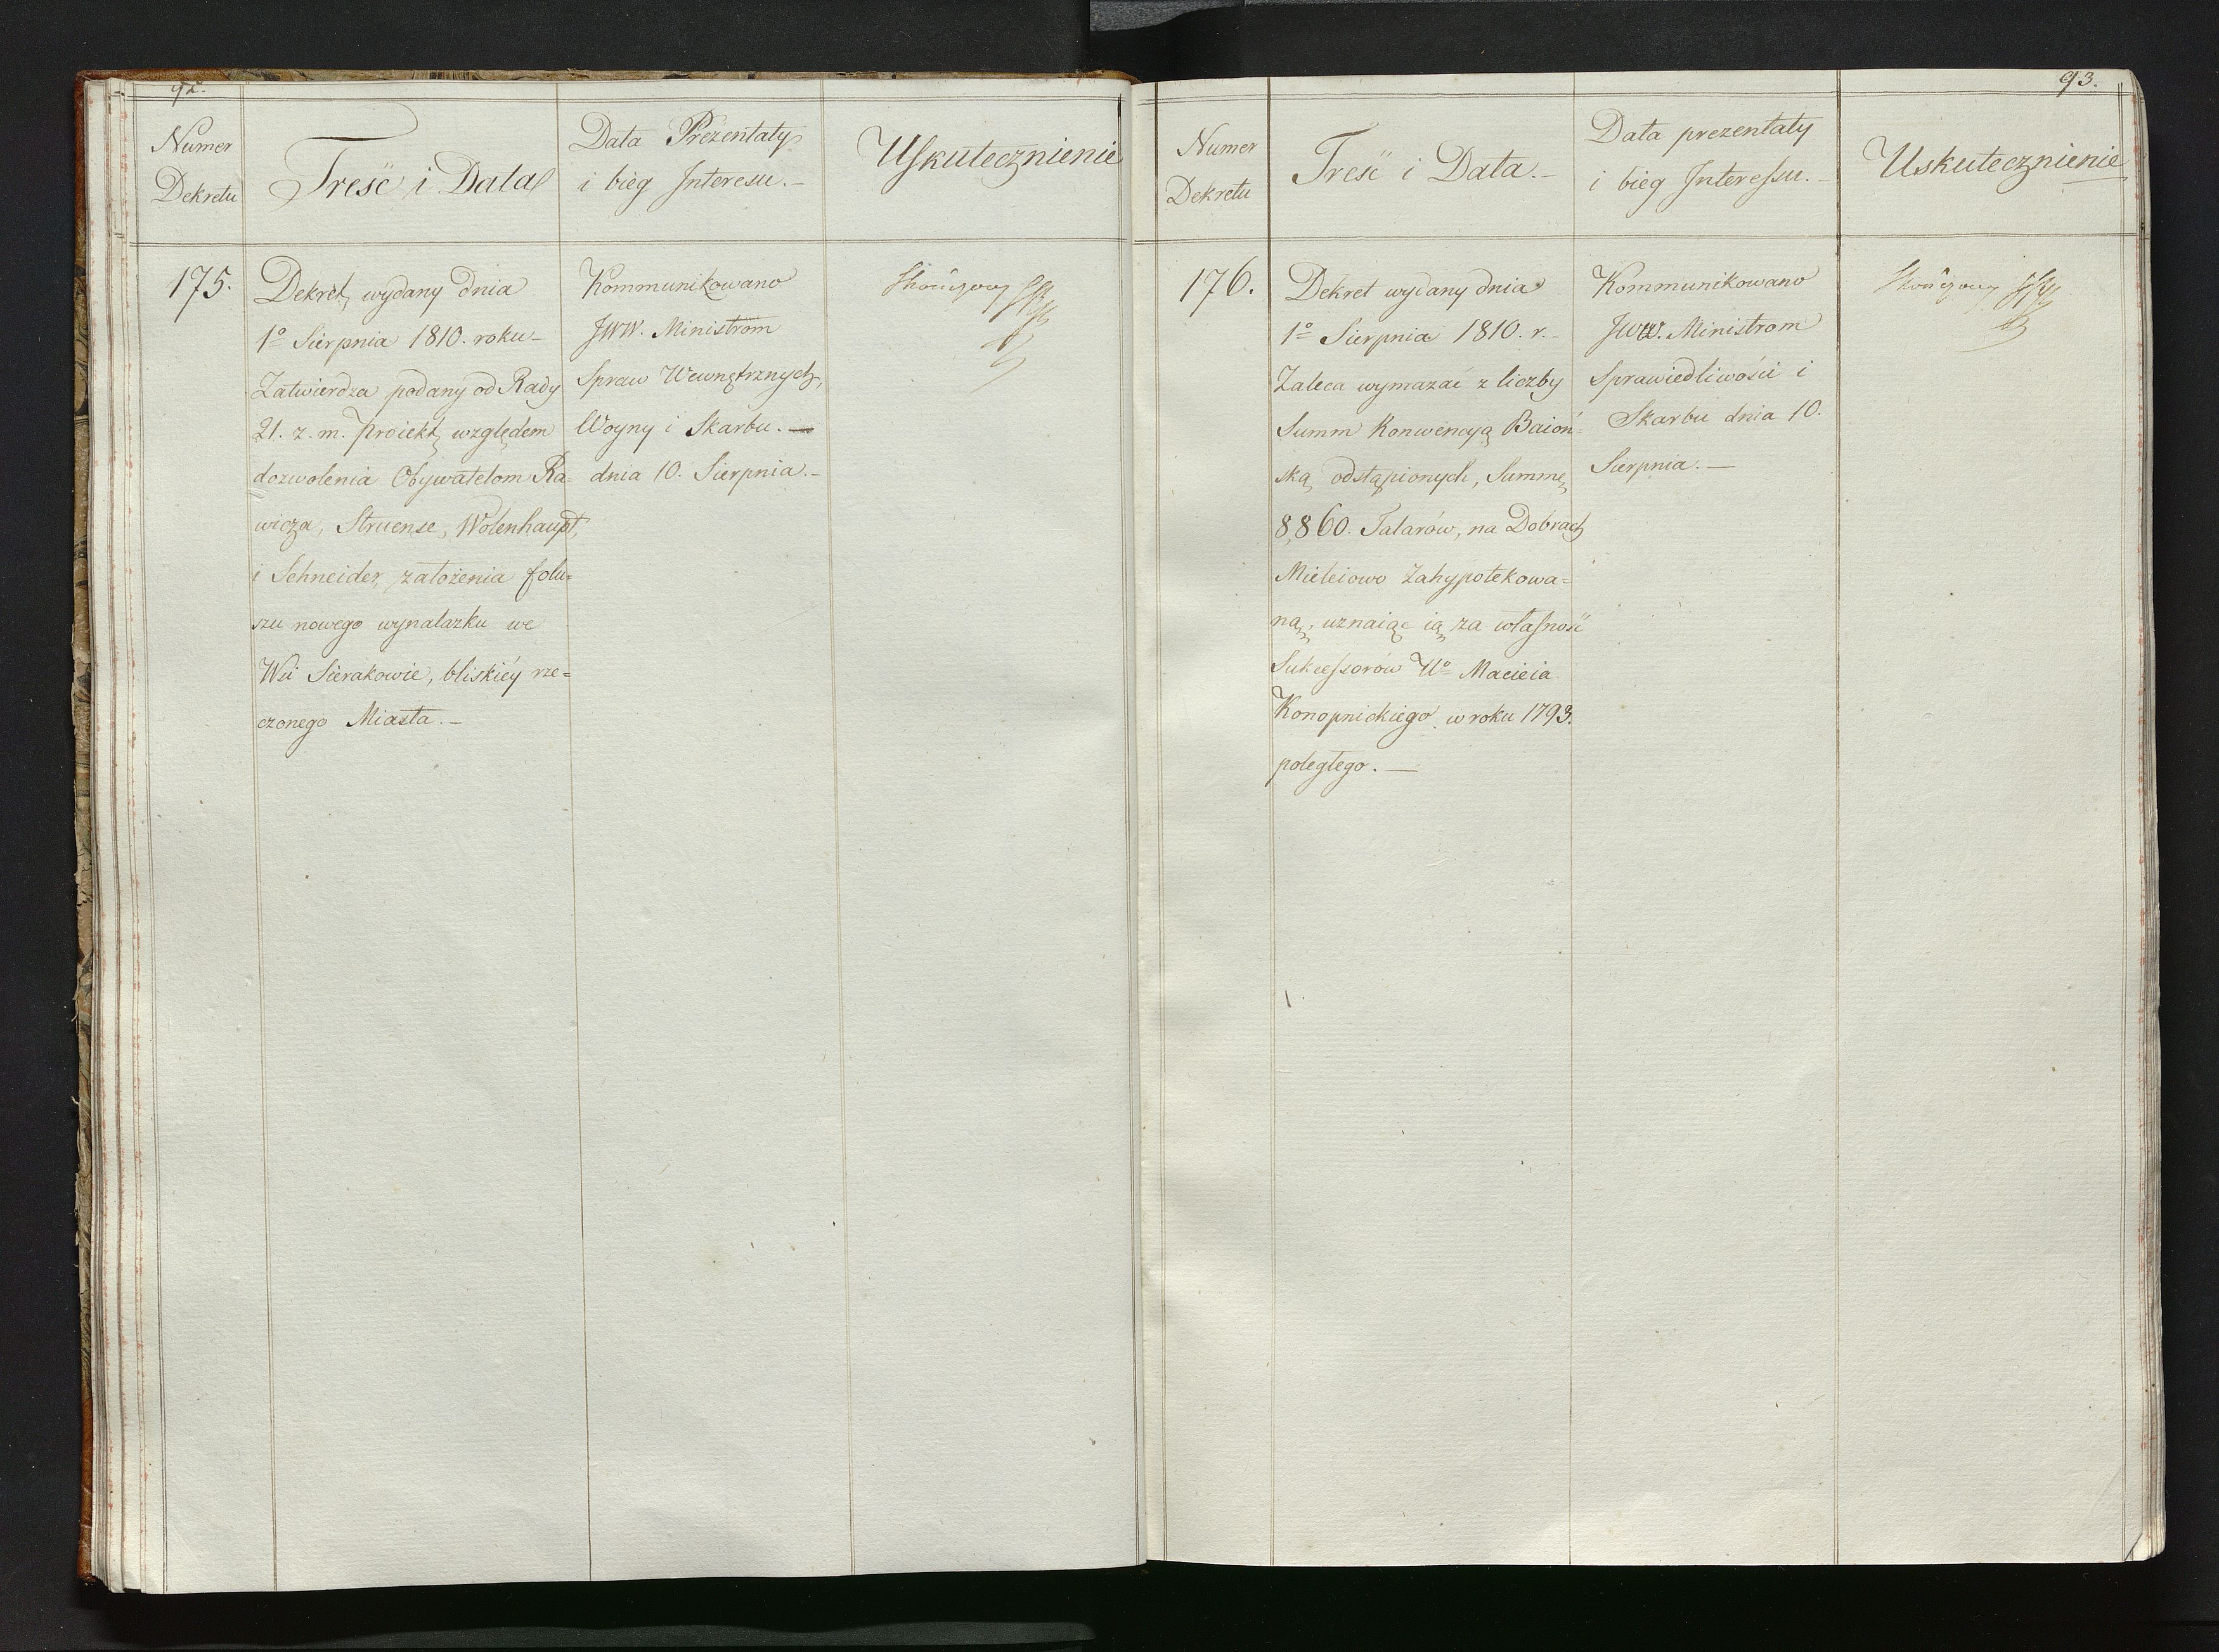 92.
Numer
Dekretu
Treść i Data
Data Prezentaty
i bieg Interesu.-
Uskutecznienie
175.
Dekret wydany dnia
1o Sierpnia 1810. roku-
Zatwierdza podany od Rady
21. z. m. Proiekt, względem
dozwolenia Obywatelom Ra=
wicza, Struense, Wolenhaupt,
i Schneider, założenia folu=
szu nowego wynalazku we
Wsi Sierakowie, bliskiéy rze=
czonego Miasta.-
Kommunikowano
JWW. Ministrom
Spraw Wewnętrznych,
Woyny i Skarbu.-
dnia 10. Sierpnia.-
Skończony
93.
Numer
Dekretu
Treść i Data.-
Data prezentaty
i bieg Interessu.-
Uskutecznienie
176.
Dekret wydany dnia
1o Sierpnia 1810. r.-
Zaleca wymazać z liczby
Summ Konwencyą Baioń=
ską odstąpionych, Summę
8,860. Talarów, na Dobrach
Mieleiowo Zahypotekowa=
ną, uznaiąc ią za własność
Sukcessorów Uo Macieia
Konopnickiego w roku 1793.
poległego.-
Kommunikowano
JWW. Ministrom
Sprawiedliwości i
Skarbu dnia 10.
Sierpnia.-
Skończony